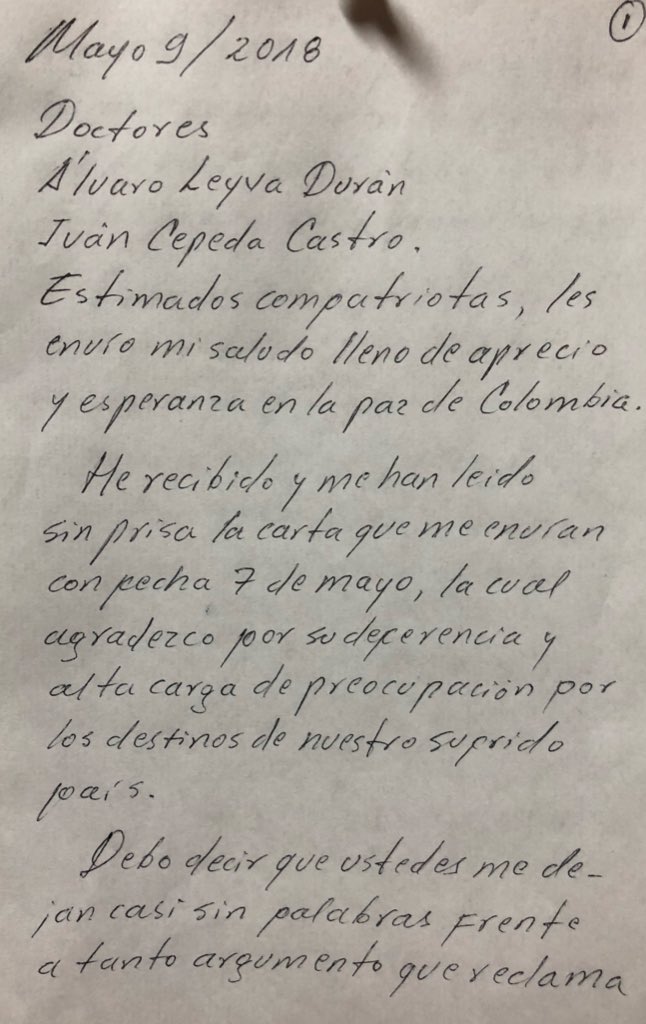 1
Mayo 9/2018
Doctores
Álvaro Leyva Durán
Iván Cepeda Castro.
Estimados compatriotas, les
envío mi saludo lleno de aprecio
y esperanza en la paz de Colombia.
He recibido y me han leido
sin prisa la carta que me envían
con fecha 7 de mayo, la cual
agradezco por su deferencia y
alta carga de preocupación por
los destinos de nuestro sufrido
país.
Debo decir que ustedes me de-
jan casi sin palabras frente
a tanto argumento que reclama